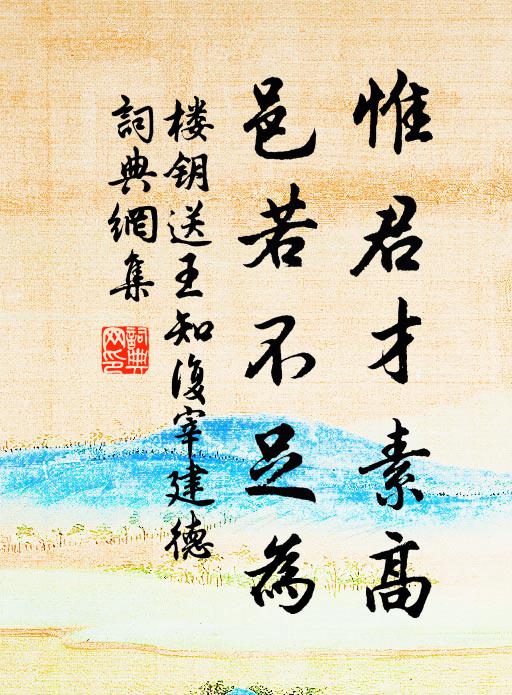 惟君才素高
邑若不足為
楼钥送王知復宰建德
詞典網集
詞典網印